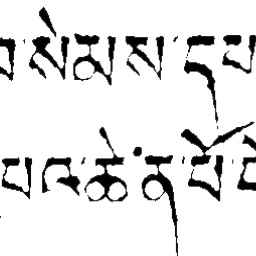 སེམས་དཔ
པའ་ཆེན་པོ